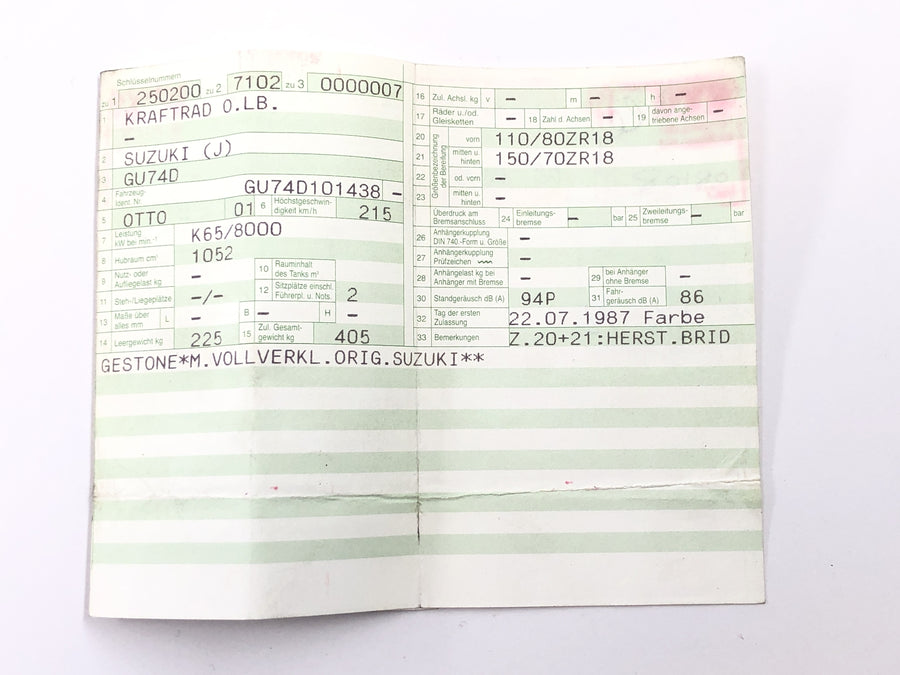 Schlüsselnummern
zu 1 250200 zu 2 7102 zu 3 0000007
1 KRAFTRAD O.LB.
–
2 SUZUKI (J)
3 GU74D
4 Fahrzeug-Ident. Nr. GU74D101438 –
5 OTTO 01 6 Höchstgeschwin-digkeit km/h 215
7 Leistung kW bei min.⁻¹ K65/8000
8 Hubraum cm³ 1052
9 Nutz- oder Aufliegelast kg – 10 Rauminhalt des Tanks m³ –
11 Steh-/Liegeplätze –/– 12 Sitzplätze einschl. Führerpl. u. Nots. 2
13 Maße über alles mm L – B – H –
14 Leergewicht kg 225 15 Zul. Gesamt-gewicht kg 405
16 Zul. Achsl. kg v – m – h –
17 Räder u./od. Gleisketten – 18 Zahl d. Achsen – 19 davon ange-triebene Achsen –
Größenbezeichnung der Bereifung
20 vorn 110/80ZR18
21 mitten u. hinten 150/70ZR18
22 od. vorn –
23 mitten u. hinten –
Überdruck am Bremsanschluss 24 Einleitungs-bremse – bar 25 Zweileitungs-bremse – bar
26 Anhängerkupplung DIN 740.-Form u. Größe –
27 Anhängerkupplung Prüfzeichen –
28 Anhängelast kg bei Anhänger mit Bremse – 29 bei Anhänger ohne Bremse –
30 Standgeräusch dB (A) 94P 31 Fahr-geräusch dB (A) 86
32 Tag der ersten Zulassung 22.07.1987 Farbe
33 Bemerkungen Z.20+21:HERST.BRID
GESTONE*M.VOLLVERKL.ORIG.SUZUKI**